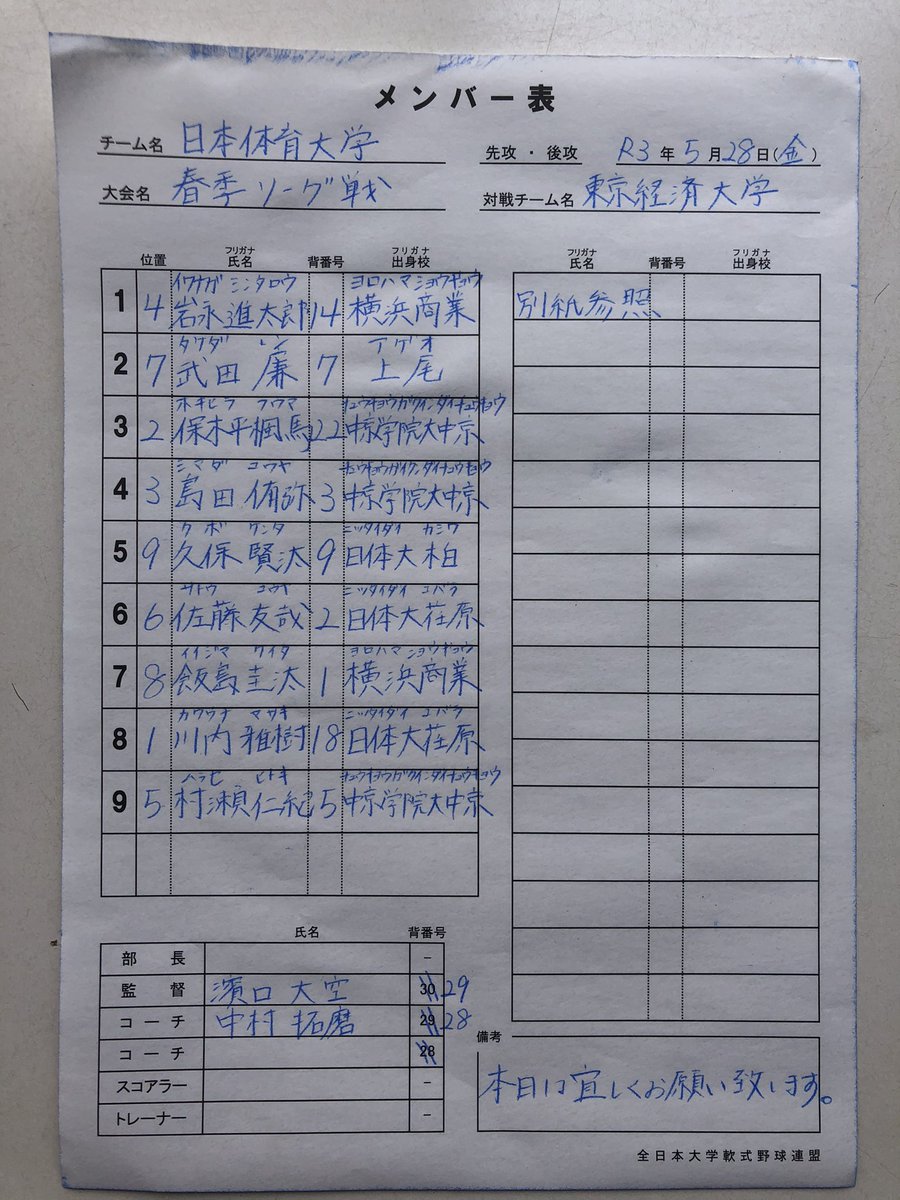 メンバー表
チーム名 日本体育大学
先攻・後攻 R3年5月28日(金)
大会名 春季リーグ戦
対戦チーム名 東京経済大学
位置 フリガナ 氏名 背番号 フリガナ 出身校
フリガナ 氏名 背番号 フリガナ 出身校
シンタロウ
1 4 岩永進太郎 14 横浜商業
別紙参照
タケダ レン アゲオ
2 7 武田 廉 7 上尾
ホキヒラ フウマ チュウキョウガクインダイチュウキョウ
3 2 保木平楓馬 22 中京学院大中京
シマダ コウヤ
4 3 島田侑弥 3 中京学院大中京
クボ ケンタ ニッタイダイ カシワ
5 9 久保賢汰 9 日体大柏
サトウ ユウヤ ニッタイダイ エバラ
6 6 佐藤友哉 2 日体大荏原
イイジマ ケイタ
7 8 飯島圭汰 1 横浜商業
マサキ ニッタイダイ エバラ
8 1 川内雅樹 18 日体大荏原
チュウキョウガクインダイチュウキョウ
9 5 村瀬仁紀 5 中京学院大中京
氏名 背番号
部長 -
監督 濱口大空 30 29
コーチ 中村拓磨 29 28
コーチ 28
スコアラー -
トレーナー -
備考
本日は宜しくお願い致します。
全日本大学軟式野球連盟